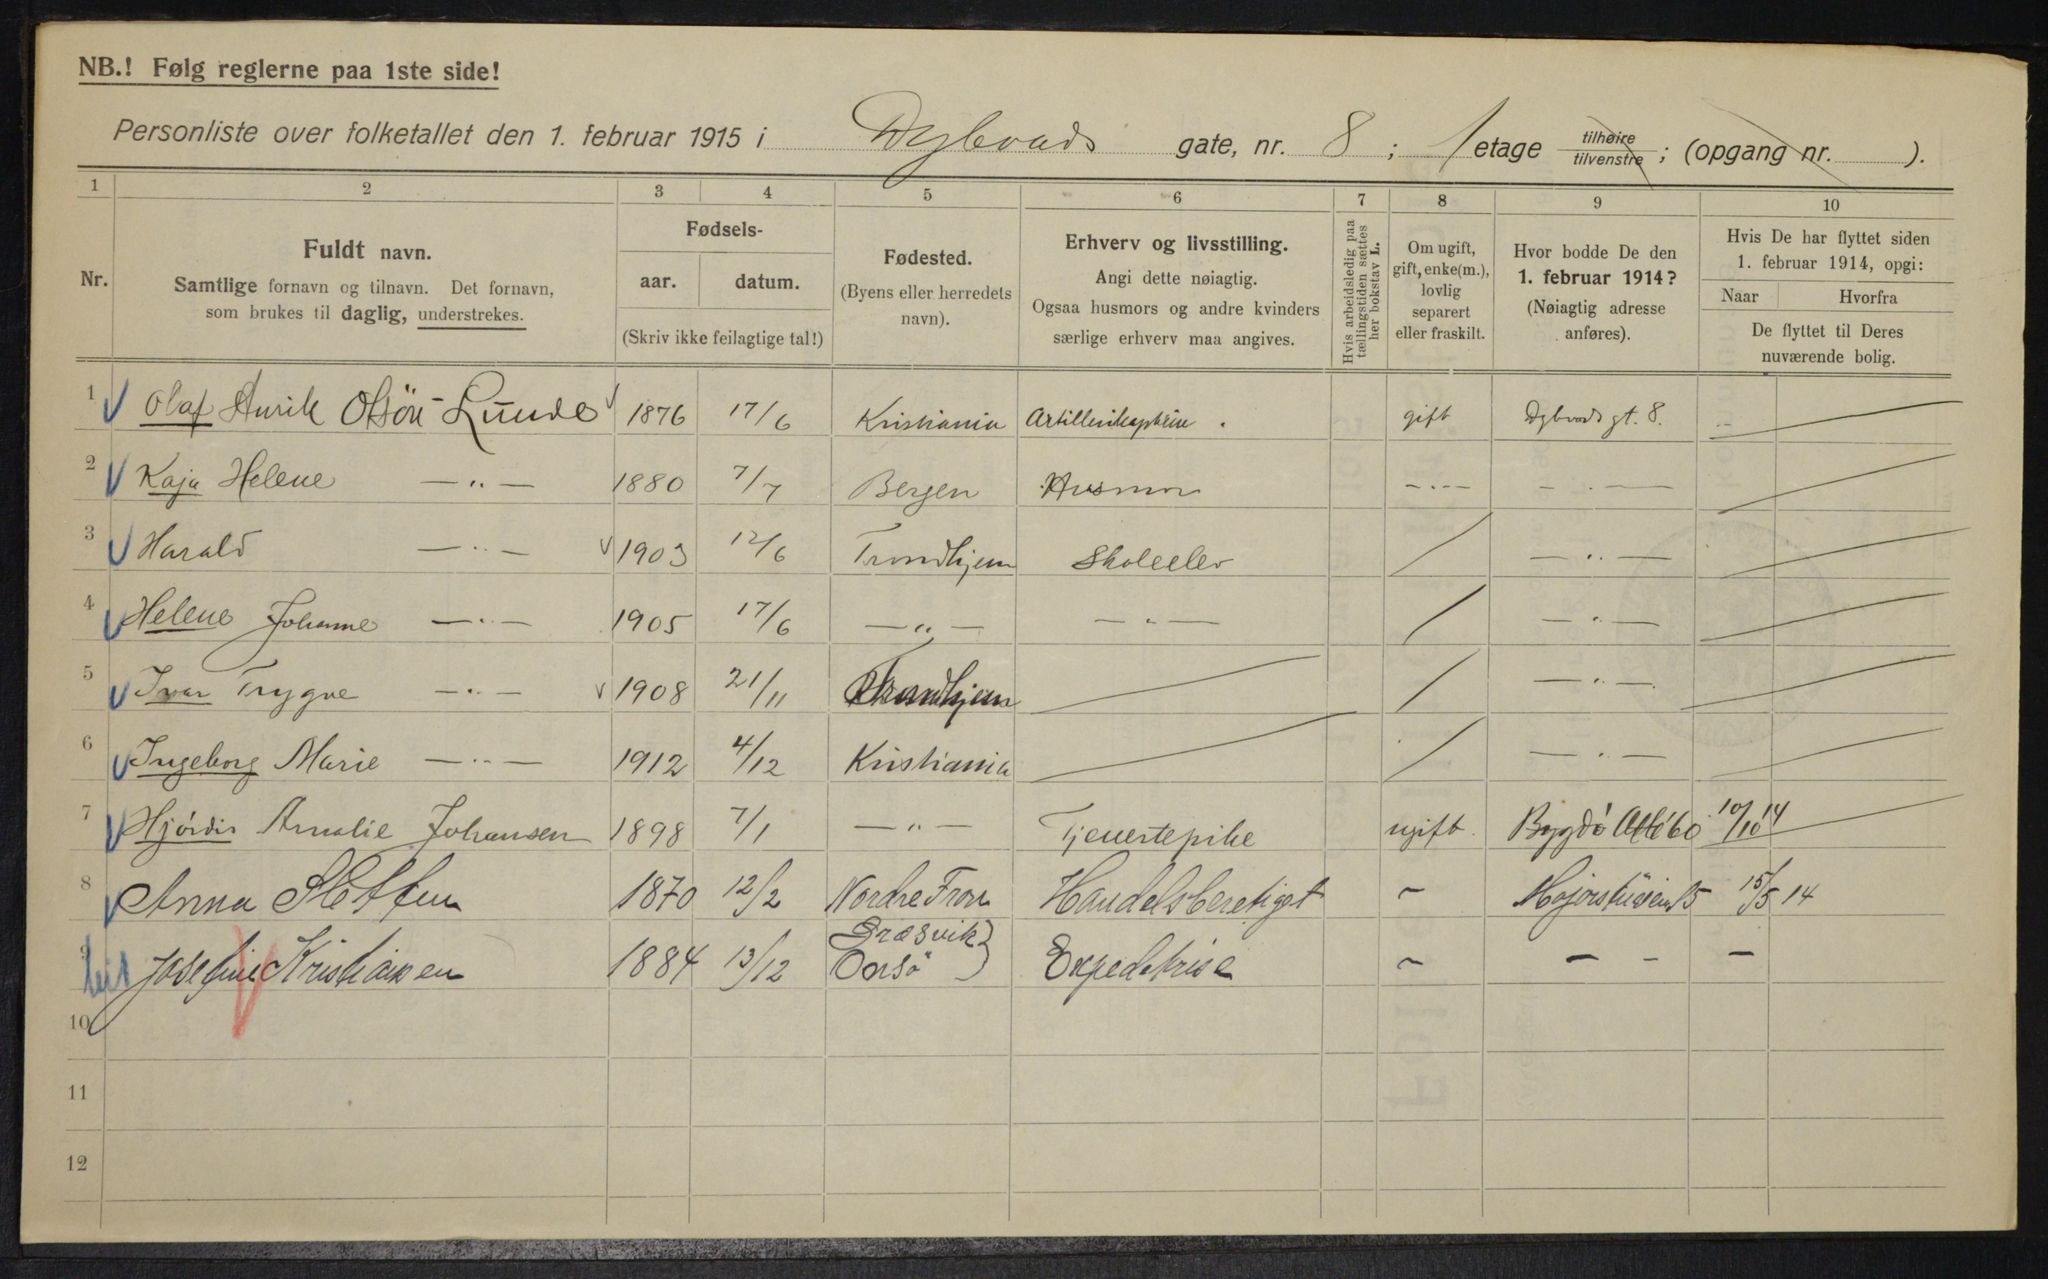 NB.! Følg reglerne paa 1ste side!
Personliste over folketallet den 1. februar 1915 i Dybvads gate, nr. 8 ; 1 etage tilhøire tilvenstre ; (opgang nr. ).
1 2 3 4 5 6 7 8 9 10
Nr.
Fuldt navn.
Samtlige fornavn og tilnavn. Det fornavn,
som brukes til daglig, understrekes.
Fødsels-
aar. datum.
(Skriv ikke feilagtige tal!)
Fødested.
(Byens eller herredets
navn).
Erhverv og livsstilling.
Angi dette nøiagtig.
Ogsaa husmors og andre kvinders
særlige erhverv maa angives.
Hvis arbeidsledig paa
tællingstiden sættes
her bokstav L.
Om ugift,
gift, enke(m.),
lovlig
separert
eller fraskilt.
Hvor bodde De den
1. februar 1914?
(Nøiagtig adresse
anføres).
Hvis De har flyttet siden
1. februar 1914, opgi:
Naar Hvorfra
De flyttet til Deres
nuværende bolig.
1 Olaf Lunde 1876 17/6 Kristiania gift Dybvadsgt. 8.
2 Kaja Helene —"— 1880 7/7 Bergen Husmor —"— —"—
3 Harald —"— 1903 12/6 Trondhjem Skoleelev —"—
4 Helene Johanne —"— 1905 17/6 —"— —"— —"—
5 Ivar Trygve —"— 1908 21/11 Trondhjem —"—
6 Ingeborg Marie —"— 1912 4/12 Kristiania —"—
7 Hjórdis Amalie Johansen 1898 7/1 —"— Tjenestepike ugift. Bygdó Allé 60 10/10 14
8 Anna 1870 12/2 Nordre Fron Handelsberetiget — 15/5 14
9 Josefine Kristiansen 1884 13/12 Græsvik Onsö Expeditrise — — — —
10
11
12